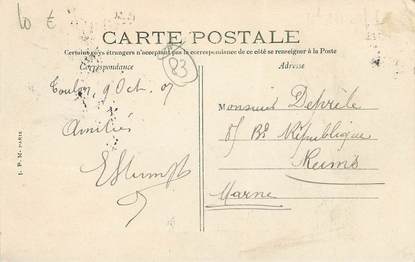 10 €
CARTE POSTALE
Certains pays étrangers n'acceptant pas la correspondance de ce côté se renseigner à la Poste
Correspondance
Adresse
83
Toulon, 9 Oct. 07
Amitiés
Monsieur Deprèle
Bd République
Reims
Marne
J. P. M. PARIS